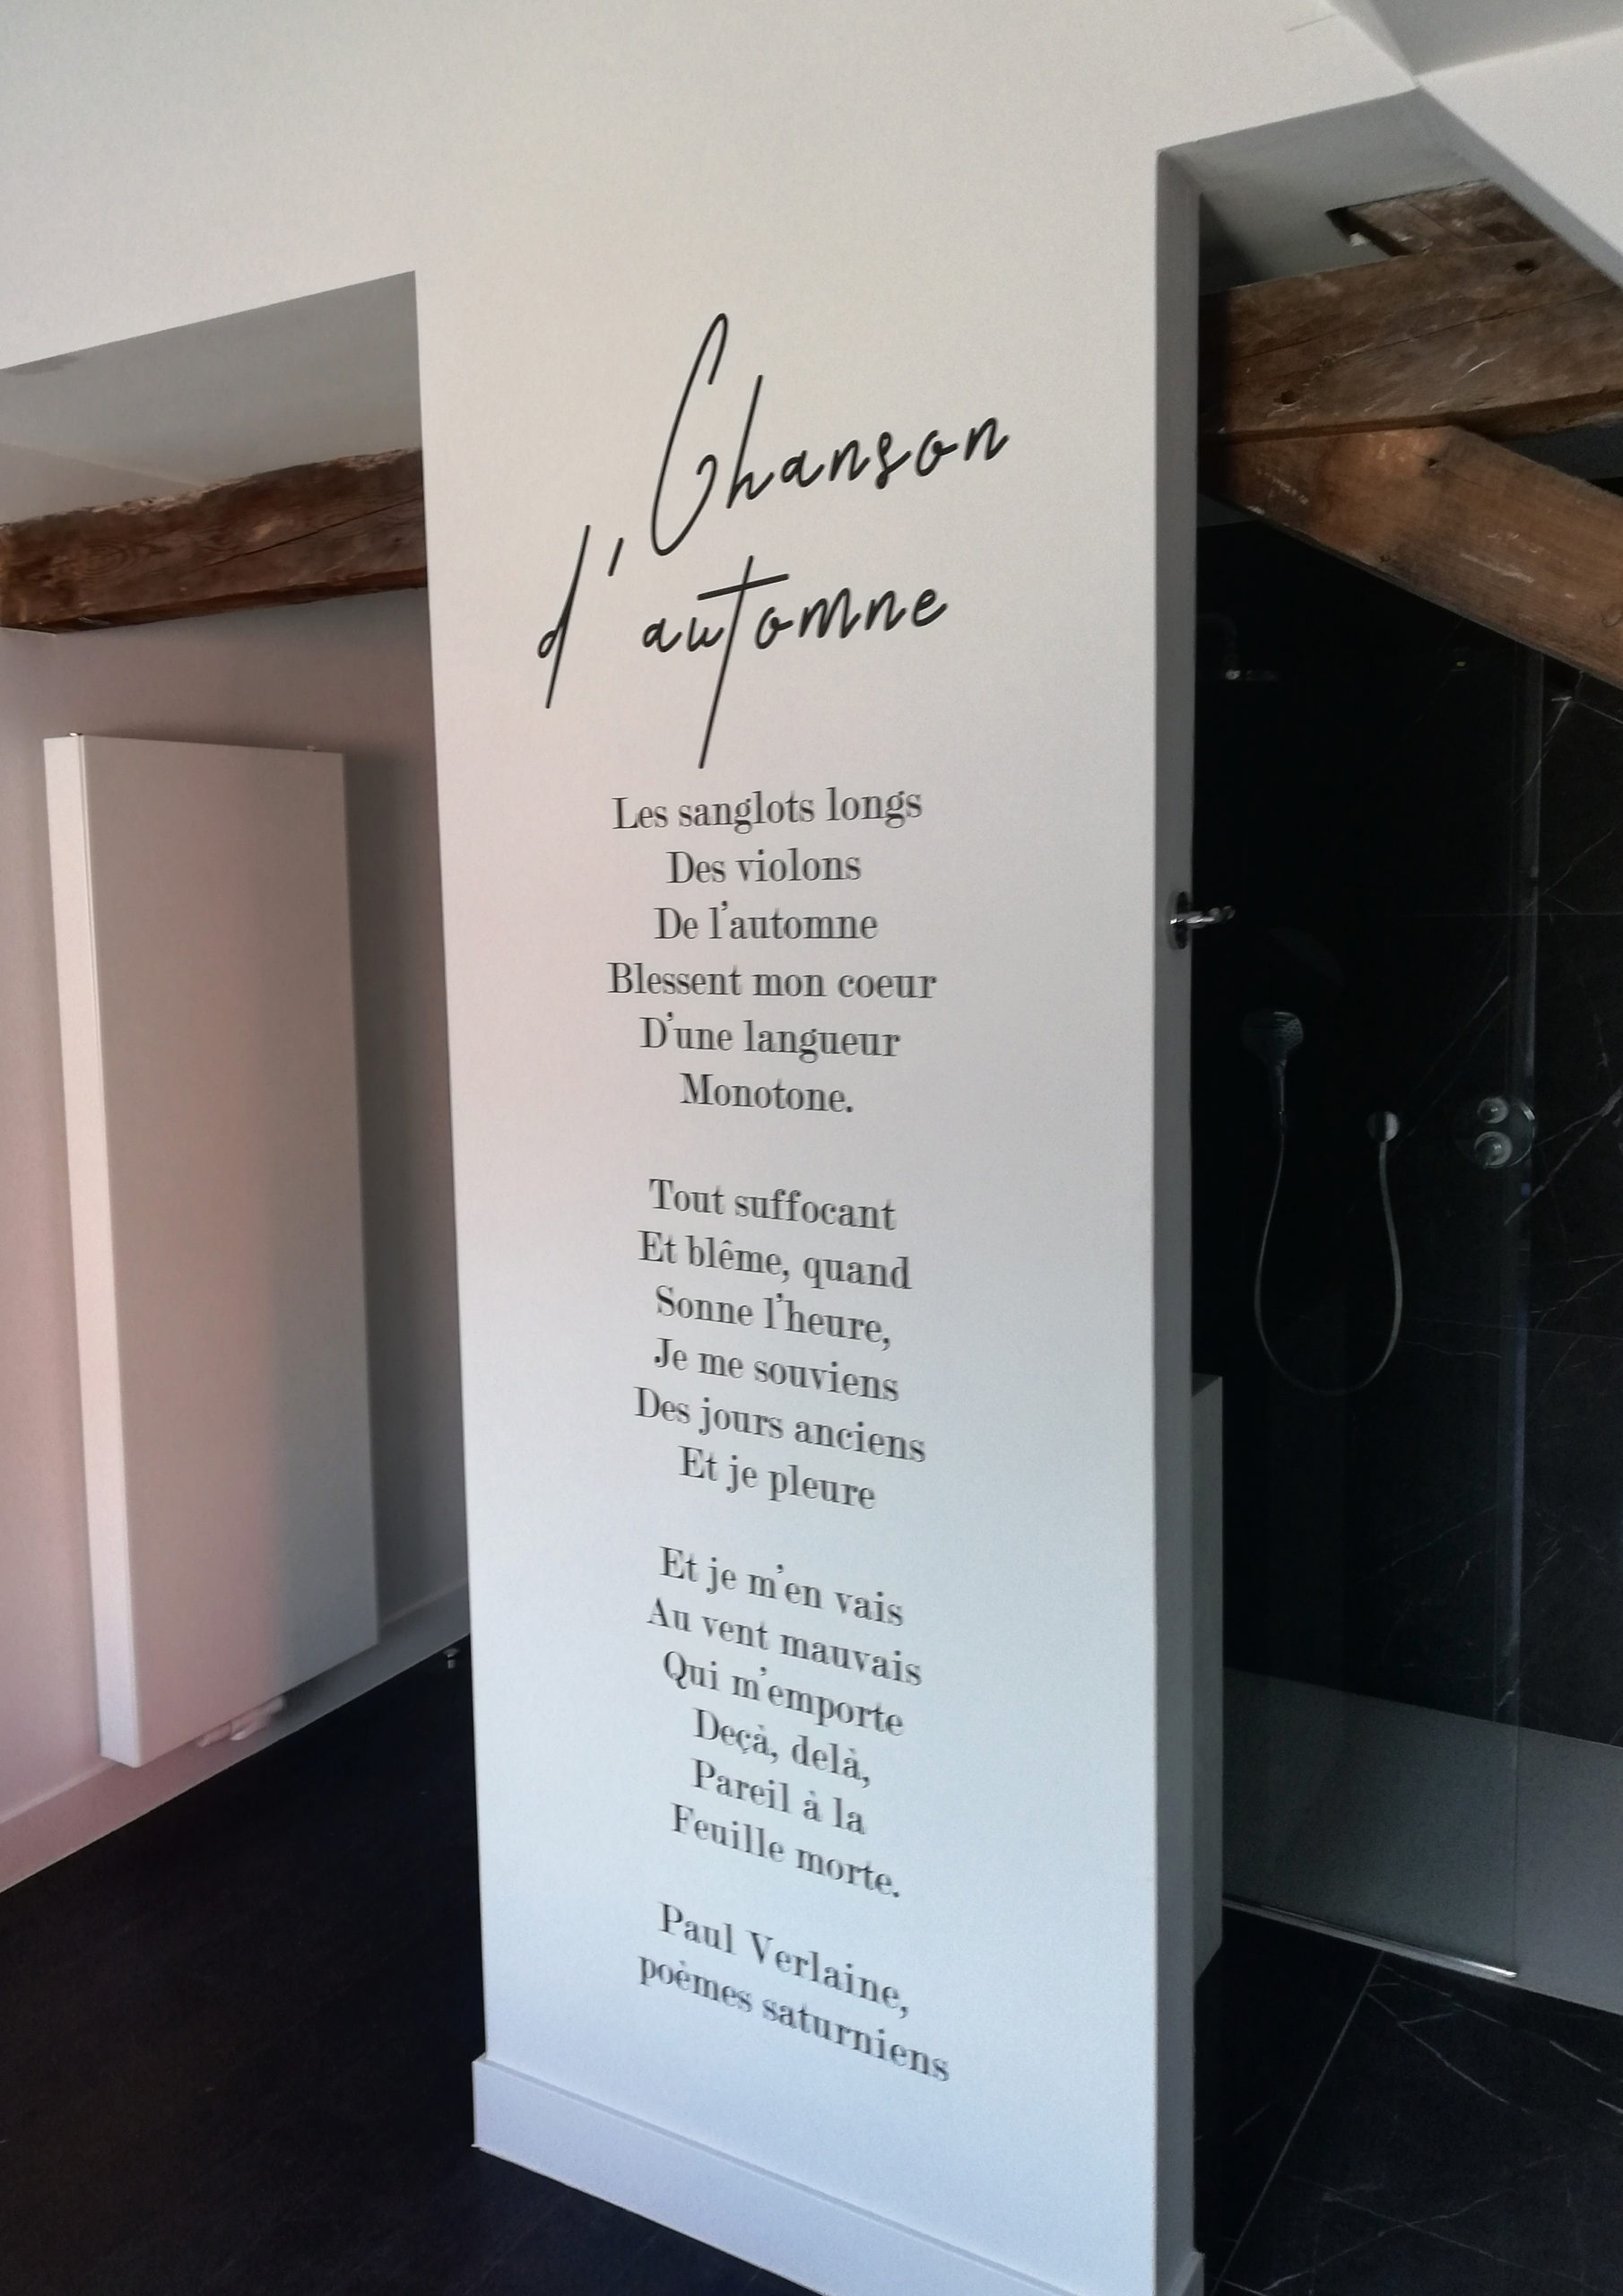 Chanson
d'automne
Les sanglots longs
Des violons
De l'automne
Blessent mon coeur
D'une langueur
Monotone.
Tout suffocant
Et blême, quand
Sonne l'heure,
Je me souviens
Des jours anciens
Et je pleure
Et je m'en vais
Au vent mauvais
Qui m'emporte
Deçà, delà,
Pareil à la
Feuille morte.
Paul Verlaine,
poèmes saturniens